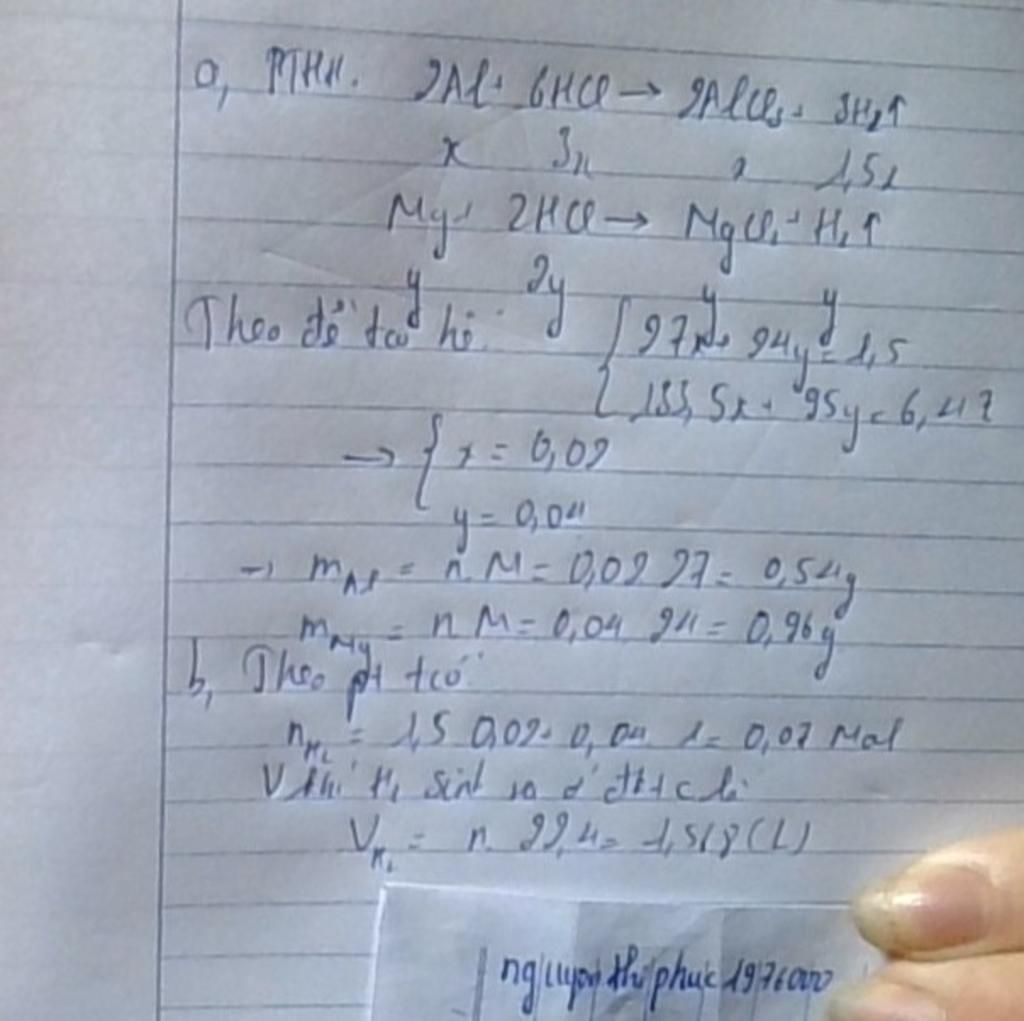 a, PTHH. 2Al + 6HCl → 2AlCl₃ + 3H₂↑
x 3x x 1,5x
Mg + 2HCl → MgCl₂ + H₂↑
y 2y y y
Theo đề ta có hệ: { 27x + 24y = 1,5
133,5x + 95y = 6,47
→ { x = 0,02
y = 0,04
→ mAl = n.M = 0,02.27 = 0,54g
mMg = n.M = 0,04.24 = 0,96g
b, Theo pt t có
nH₂ = 1,5.0,02 + 0,04.1 = 0,07 mol
V khí H₂ sinh ra ở đktc là:
VH₂ = n.22,4 = 1,568(L)
nguyen thi phuc 1976000